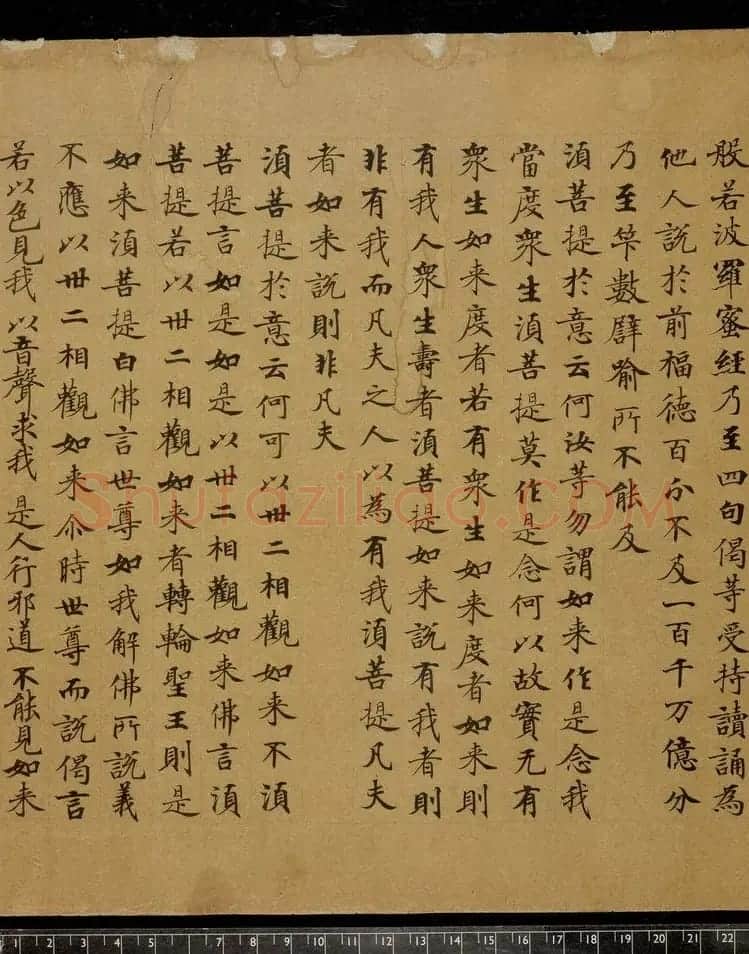 般若波羅蜜經乃至四句偈等受持讀誦為
他人說於前福德百分不及一百千万億分
乃至筭數譬喻所不能及
須菩提於意云何汝等勿謂如来作是念我
當度衆生須菩提莫作是念何以故實无有
衆生如来度者若有衆生如来度者如来則
有我人衆生壽者須菩提如来說有我者則
非有我而凡夫之人以為有我須菩提凡夫
者如来說則非凡夫
須菩提於意云何可以卅二相觀如来不須
菩提言如是如是以卅二相觀如来佛言須
菩提若以卅二相觀如来者轉輪聖王則是
如来須菩提白佛言世尊如我解佛所說義
不應以卅二相觀如来尒時世尊而說偈言
若以色見我以音聲求我是人行邪道不能見如来
Shufazikao.COM
1 2 3 4 5 6 7 8 9 10 11 12 13 14 15 16 17 18 19 20 21 22